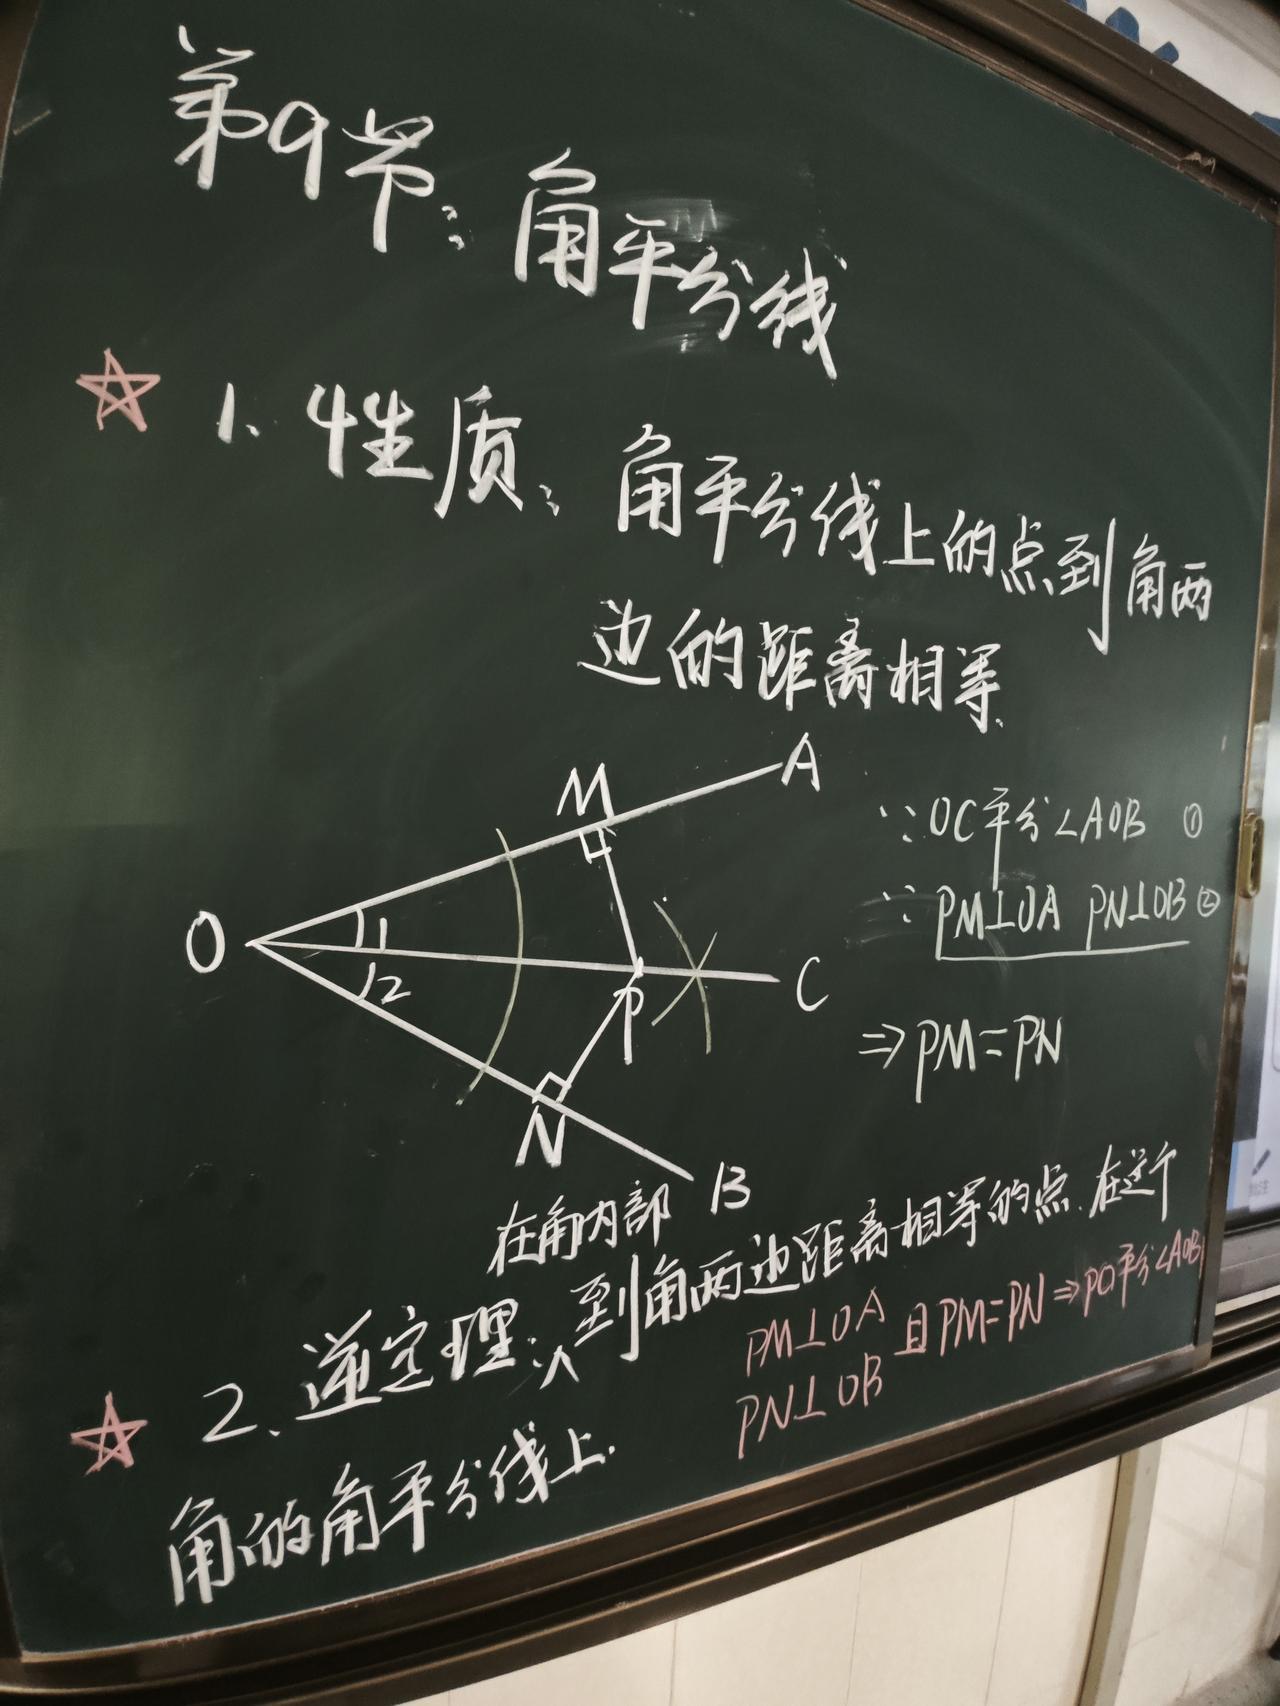 第9节：角平分线
1. 性质：角平分线上的点到角两
边的距离相等.
A
M
∵OC平分∠AOB ①
∵PM⊥OA PN⊥OB ②
O
1
2
C
P
⇒PM=PN
N
B
在角内部
2. 逆定理：到角两边距离相等的点.在这个
角的角平分线上.
PM⊥OA
PN⊥OB
且PM=PN⇒PO平分∠AOB